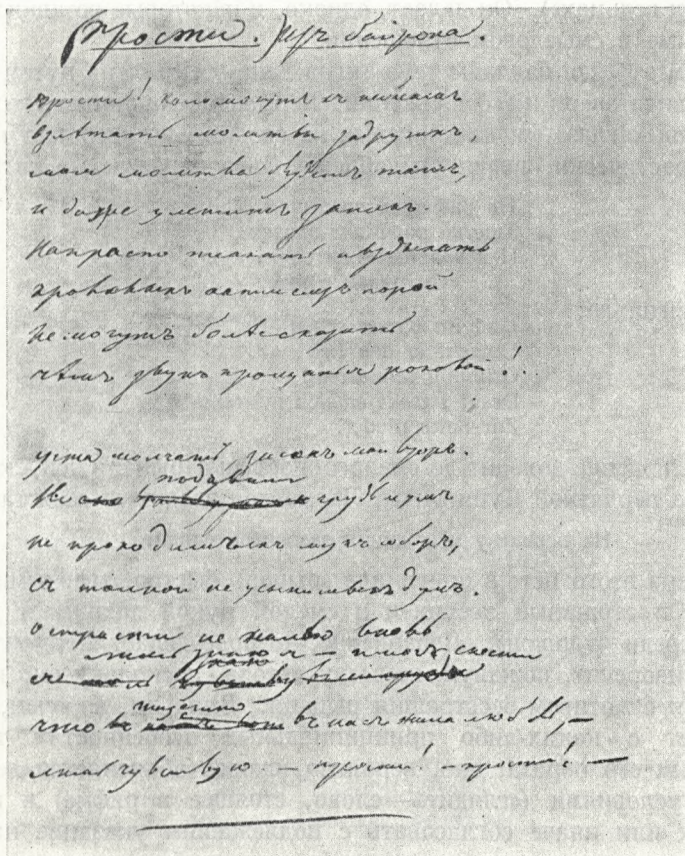 (Прости.) Изъ Байрона.
прости! коль могутъ къ небесамъ
взлѣтать молитвы за другихъ,
моя молитва будетъ тамъ,
и даже улетитъ за нихъ.
Напрасно плакать и вздыхать
кровавыхъ капли слезъ порой
не могутъ болѣ сказать
чѣмъ звукъ прощанья роковой!..
уста молчатъ, засохъ мой взоръ.
подавили
Но грудь и умъ
не проходимыхъ мукъ соборъ,
съ толпой не усыпимыхъ думъ.
о страсти не жалѣю вновь
лишь знаю я – и могъ снести
тщетно
что въ насъ жила любовь –
лишь чувствую – прости! – прости! –